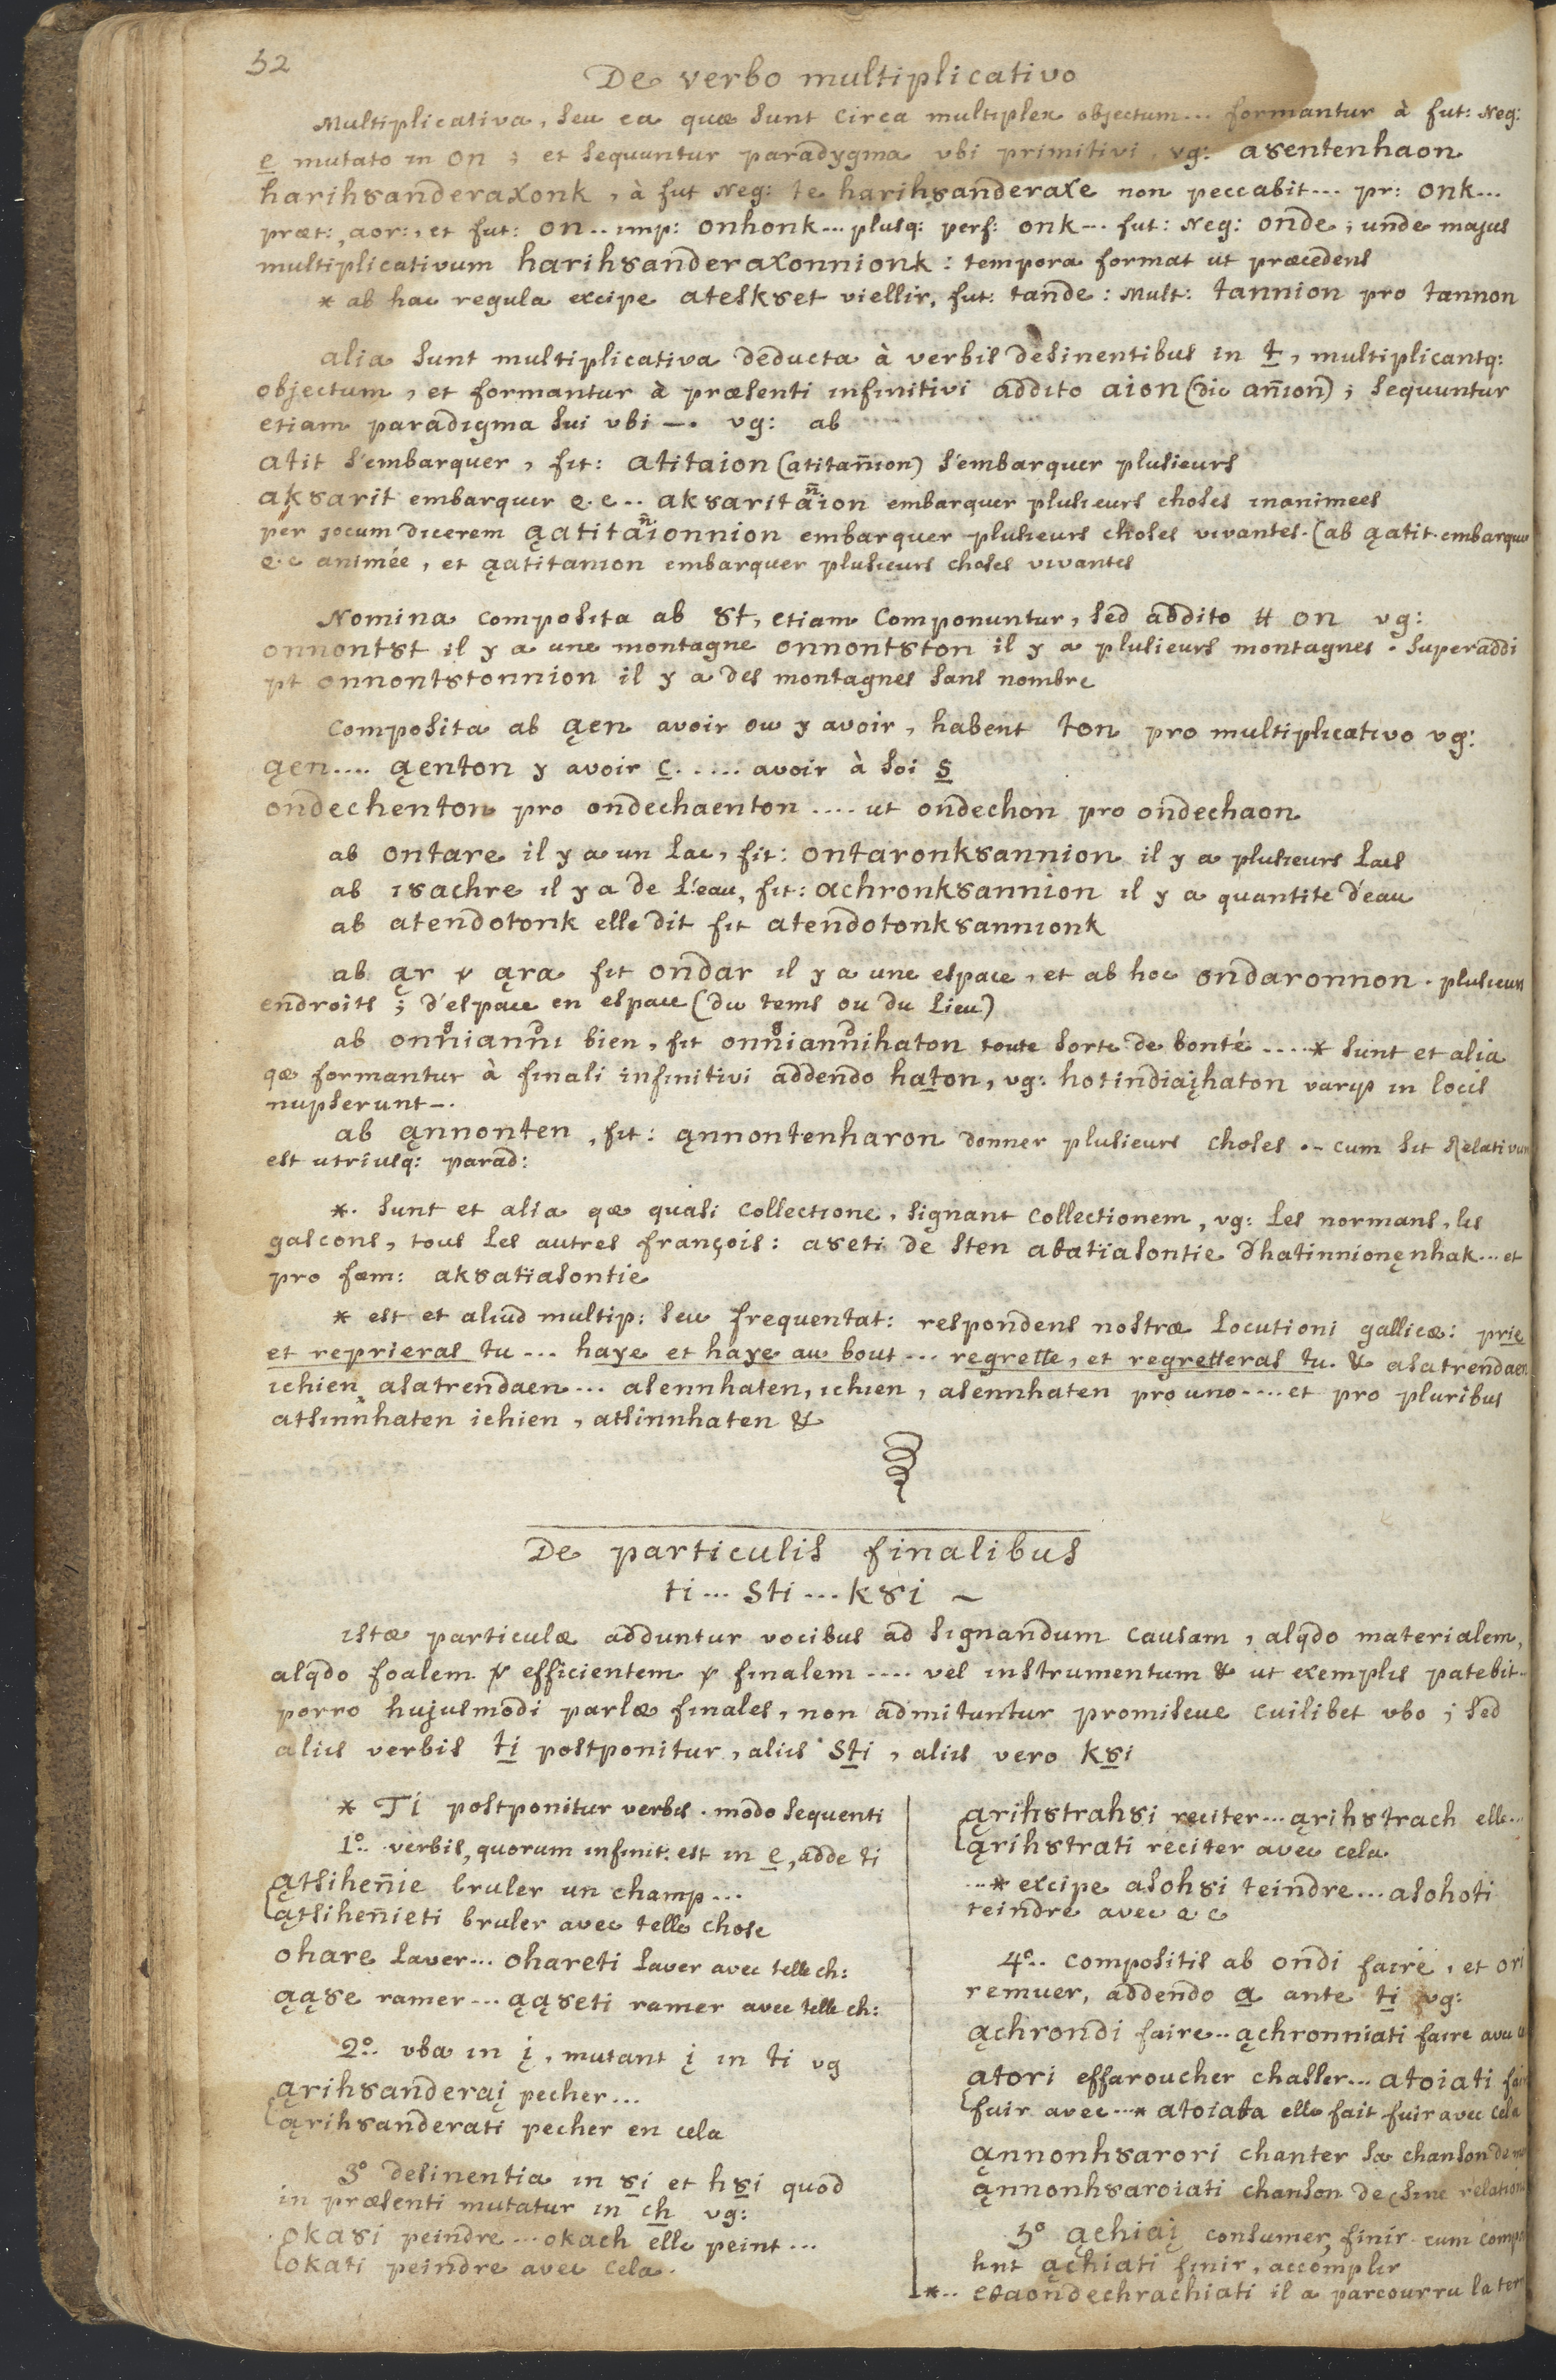 52
De verbo multiplicativo
Multiplicativa, seu ea quæ sunt circa multiplex objectum... formantur à fut: Neg:
e mutato in on ; et sequuntur paradygma vbi primitivi, vg: a8entenhaon
harih8anderaxonk, à fut Neg: te harih8anderaxe non peccabit... pr: onk...
præt:, aor:, et fut: on.. imp: onhonk... plusq: perf: onk... fut: Neg: onde ; unde majus
multiplicativum harih8anderaxonnionk : tempora format ut præcedens
* ab hac regula excipe atesk8et viellir, fut: tande : Mult: tannion pro tannon
alia sunt multiplicativa deducta à verbis desinentibus in t, multiplicantq:
objectum, et formantur à præsenti infinitivi addito aion (dic añion) ; sequuntur
etiam paradigma sui vbi —. vg: ab
atit s'embarquer, fit: atitaion (atitañion) s'embarquer plusieurs
ak8arit embarquer q.c... ak8aritañion embarquer plusieurs choses inanimees
per jocum dicerem ąatitañionnion embarquer plusieurs choses vivantes. (ab ąatit embarquer
q.c animée, et ąatitanion embarquer plusieurs choses vivantes
Nomina composita ab 8t, etiam componuntur, sed addito # on vg:
onnont8t il y a une montagne onnont8ton il y a plusieurs montagnes. superaddi
pt onnont8tonnion il y a des montagnes sans nombre
Composita ab ąen avoir ou y avoir, habent ton pro multiplicativo vg:
ąen.... ąenton y avoir c...... avoir à soi S
ondechenton pro ondechaenton .... ut ondechon pro ondechaon
ab ontare il y a un Lac, fit: ontaronk8annion il y a plusieurs Lacs
ab i8achre il y a de l'eau, fit: achronk8annion il y a quantite d'eau
ab atendotonk elle dit fit atendotonk8annionk
ab ąr v ąra fit ondar il y a une espace, et ab hoc ondaronnon. plusieurs
endroits ; d'espace en espace (du tems ou du Lieu)
ab onnianni bien, fit onniannihaton toute sorte de bonté ....* sunt et alia
qæ formantur à finali infinitivi addendo haton, vg: hotindiaįhaton varijs in locis
nupserunt—.
ab ąnnonten, fit: ąnnontenharon donner plusieurs choses .. cum sit Relativum
est utriusq: parad:
*. sunt et alia qæ quasi collectione, signant collectionem, vg: Les normans, les
gascons, tous Les autres françois: a8eti de sten abatiasontie d'hatinnionęnhak... et
pro fœm: ak8atiasontie
* est et aliud multip: seu frequentat: respondens nostræ Locutioni gallicæ: prie
et reprieras tu ... haye et haye au bout ... regrette, et regretteras tu. & asatrendaen
ichien asatrendaen... asennhaten, ichien, asennhaten pro uno.... et pro pluribus
atsinnhaten ichien, atsinnhaten &
De particulis finalibus
ti ... sti ... k8i ~
istæ particulæ adduntur vocibus ad signandum causam, alqdo materialem,
alqdo foalem v efficientem v finalem .... vel instrumentum & ut exemplis patebit..
porro hujusmodi parlæ finales, non admittuntur promiscue cuilibet vbo ; sed
aliis verbis ti postponitur, aliis sti, aliis vero k8i
* Ti postponitur verbis. modo sequenti
1°.. verbis, quorum infinit: est in e, adde ti
ątsiheñie bruler un champ...
ątsiheñieti bruler avec telle chose
ohare Laver... ohareti Laver avec telle ch:
ąą8e ramer... ąą8eti ramer avec telle ch:
2°.. vba in į, mutant į in ti vg
ąrih8anderaį pecher...
ąrih8anderati pecher en cela
3° desinentia in 8i et h8i quod
in præsenti mutatur in ch vg:
oka8i peindre... okach elle peint...
okati peindre avec cela.
ąrih8trah8i reciter... ąrih8trach elle...
ąrih8trati reciter avec cela
...* excipe asoh8i teindre... asohoti
teindre avec q c
4°.. compositis ab ondi faire, et ori
remuer, addendo a ante ti vg:
ąchrondi faire.. ąchronniati faire avec
atori effaroucher chasser... atoiati
fuir avec...* atoiata elle fait fuir avec cela
ąnnonh8arori chanter sa chanson de
ąnnonh8aroiati chanson de (sine relatione
5° ąchiaį consumer, finir. cum comp
hnt ąchiati finir, accomplir
*.. e8aondechrachiati il a parcourru la